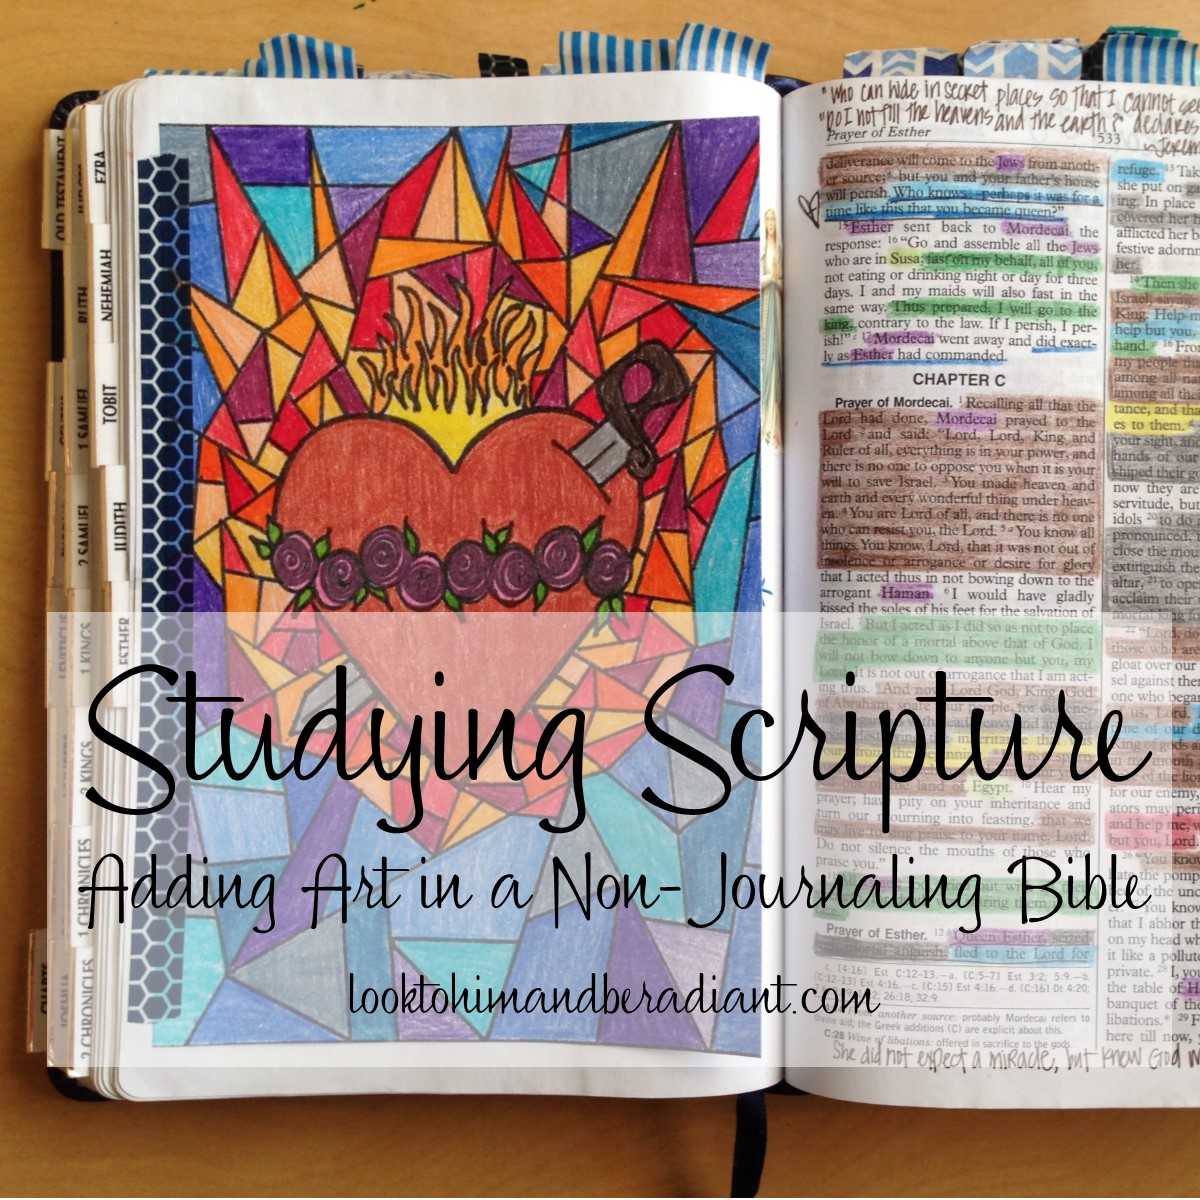 "Who can hide in secret places so that I cannot see
"Do I not fill the heavens and the earth?" declares
Prayer of Esther
533
~Jerem
OLD TESTAMENT
EZRA
RUTH
NEHEMIAH
1 SAMUEL
TOBIT
2 SAMUEL
JUDITH
LEVITICUS
1 KINGS
ESTHER
2 KINGS
1 CHRONICLES
CHARTS
JOSHUA
2 CHRONICLES
deliverance will come to the Jews from anoth-
er source; but you and your father's house
will perish. Who knows—perhaps it was for a
time like this that you became queen?"
15 Esther sent back to Mordecai the
response: 16 "Go and assemble all the Jews
who are in Susa; fast on my behalf, all of you,
not eating or drinking night or day for three
days. I and my maids will also fast in the
same way. Thus prepared, I will go to the
king, contrary to the law. If I perish, I per-
ish!"c 17 Mordecai went away and did exact-
ly as Esther had commanded.
CHAPTER C
Prayer of Mordecai. 1 Recalling all that the
Lord had done, Mordecai prayed to the
Lord 2 and said: "Lord, Lord, King and
Ruler of all, everything is in your power, and
there is no one to oppose you when it is your
will to save Israel. 3 You made heaven and
earth and every wonderful thing under heav-
en. 4 You are Lord of all, and there is no one
who can resist you, the Lord. 5 a You know all
things. You know, Lord, that it was not out of
insolence or arrogance or desire for glory
that I acted thus in not bowing down to the
arrogant Haman. 6 I would have gladly
kissed the soles of his feet for the salvation of
Israel. 7 But I acted as I did so as not to place
the honor of a mortal above that of God. I
will not bow down to anyone but you, my
Lord. It is not out of arrogance that I am act-
ing thus. 8 And now, Lord God, King, God
of Abraham, spare your people, for our
inheritance
out of the land of Egypt. 10 Hear my
prayer; have pity on your inheritance and
turn our mourning into feasting, that we
may live to sing praise to your name, Lord.
Do not silence the mouths of those who
praise you."
Prayer of Esther. 12 Queen Esther, seized
mortal anguish, fled to the Lord for
refuge. 13 Tak
she put on ga
ing. In place
covered her
afflicted her b
festive adorn
her.
14 Then she
Israel, saying
King. Help m
help but you
hand. 16 From
my people th
among all na
among all
tance, and th
es to them.
your sight, and
hands of our
shiped their g
now they are
servitude, bu
idols 20 to do
pronounced,
close the mou
extinguish the
altar, 21 to ope
acclaim their
mortal king
22 "Lord, d
those who are
gloat over our
sel against the
one who bega
us, Lord.
for our enemy
ators may peri
and help me,
but you, Lord.
You know
the pomp
of the unc
You know
that I abhor th
on my head wh
it like a pollute
private. 28 I, yo
the table of H
banquet of the
libations.* 29 F
here till now, y
c. [4:16] Est C:12-13.—a. [C:5-7] Est 3:2; 5:9.—b.
[C:12-13] Est 4:16.—c. [C:15] Est 4:16.—d. [C:16] Dt 4:20;
26:18; 32:9.
another source: probably Mordecai refers to
divine aid; the Greek additions (C) are explicit about this.
C:28 Wine of libations: offered in sacrifice to the gods.
She did not expect a miracle, but knew God w
Studying Scripture
Adding Art in a Non- Journaling Bible
looktohimandberadiant.com